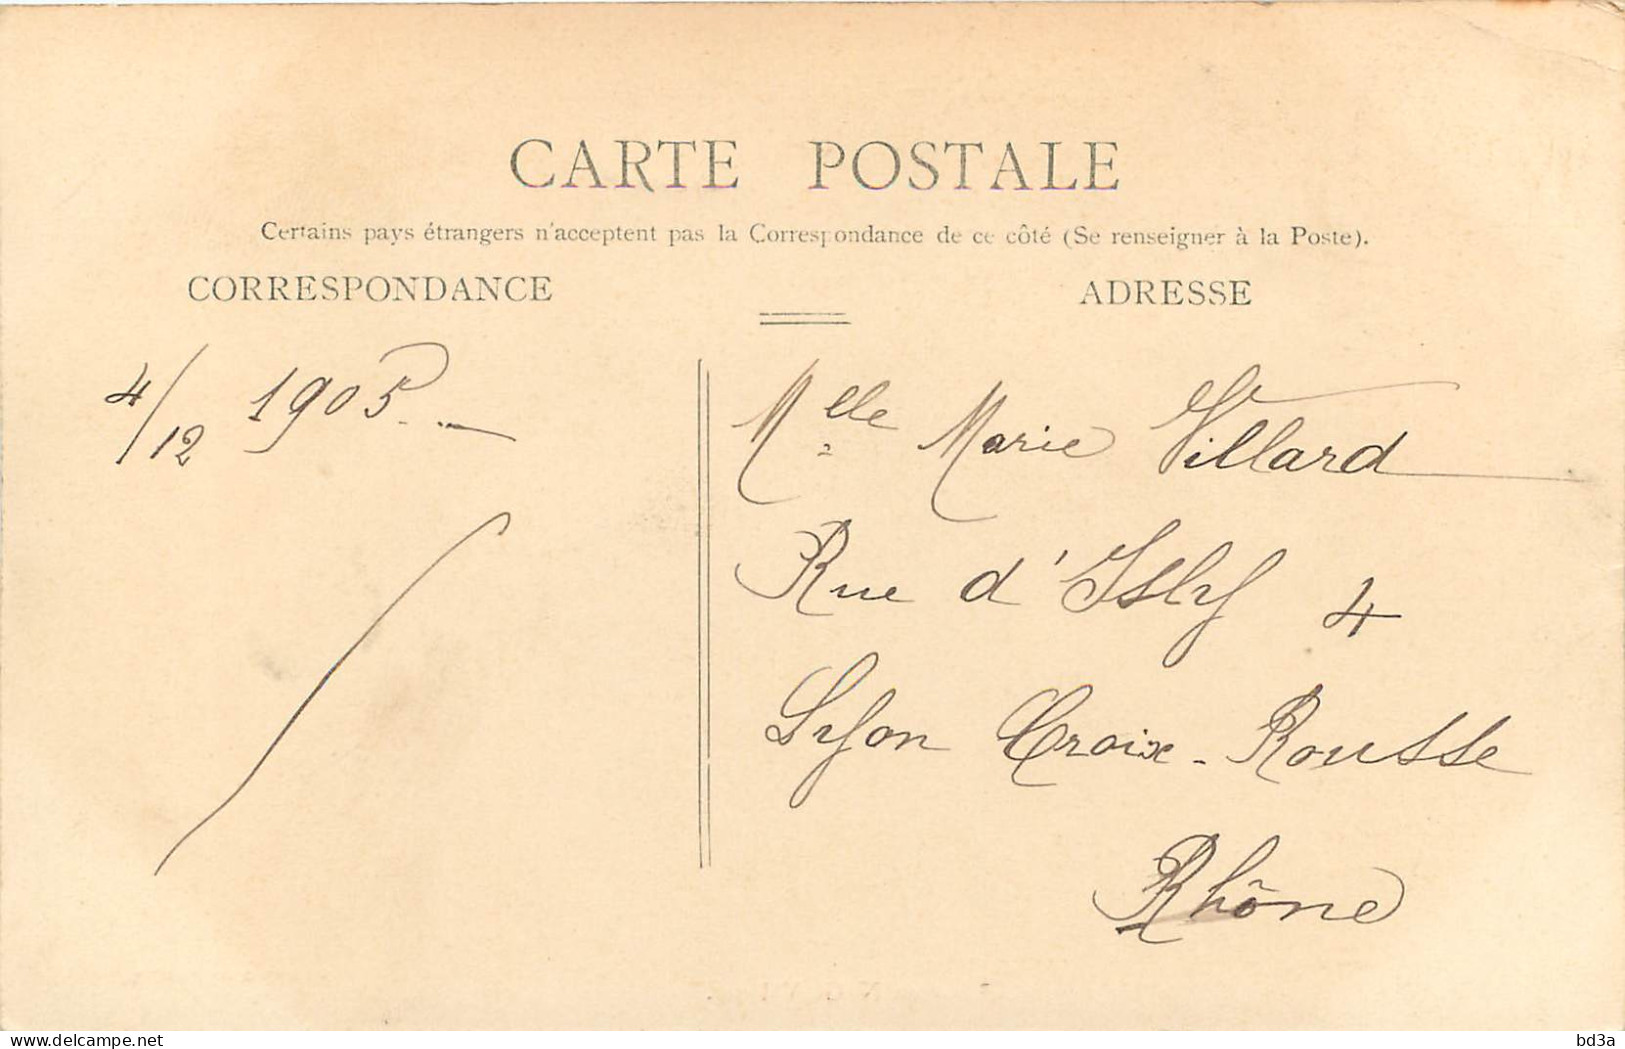 CARTE POSTALE
Certains pays étrangers n'acceptent pas la Correspondance de ce côté (Se renseigner à la Poste).
CORRESPONDANCE
ADRESSE
4/12 1905
Mlle Marie Villard
Rue d'Isly 4
Lyon Croix-Rousse
Rhône
delcampe.net
bd3a